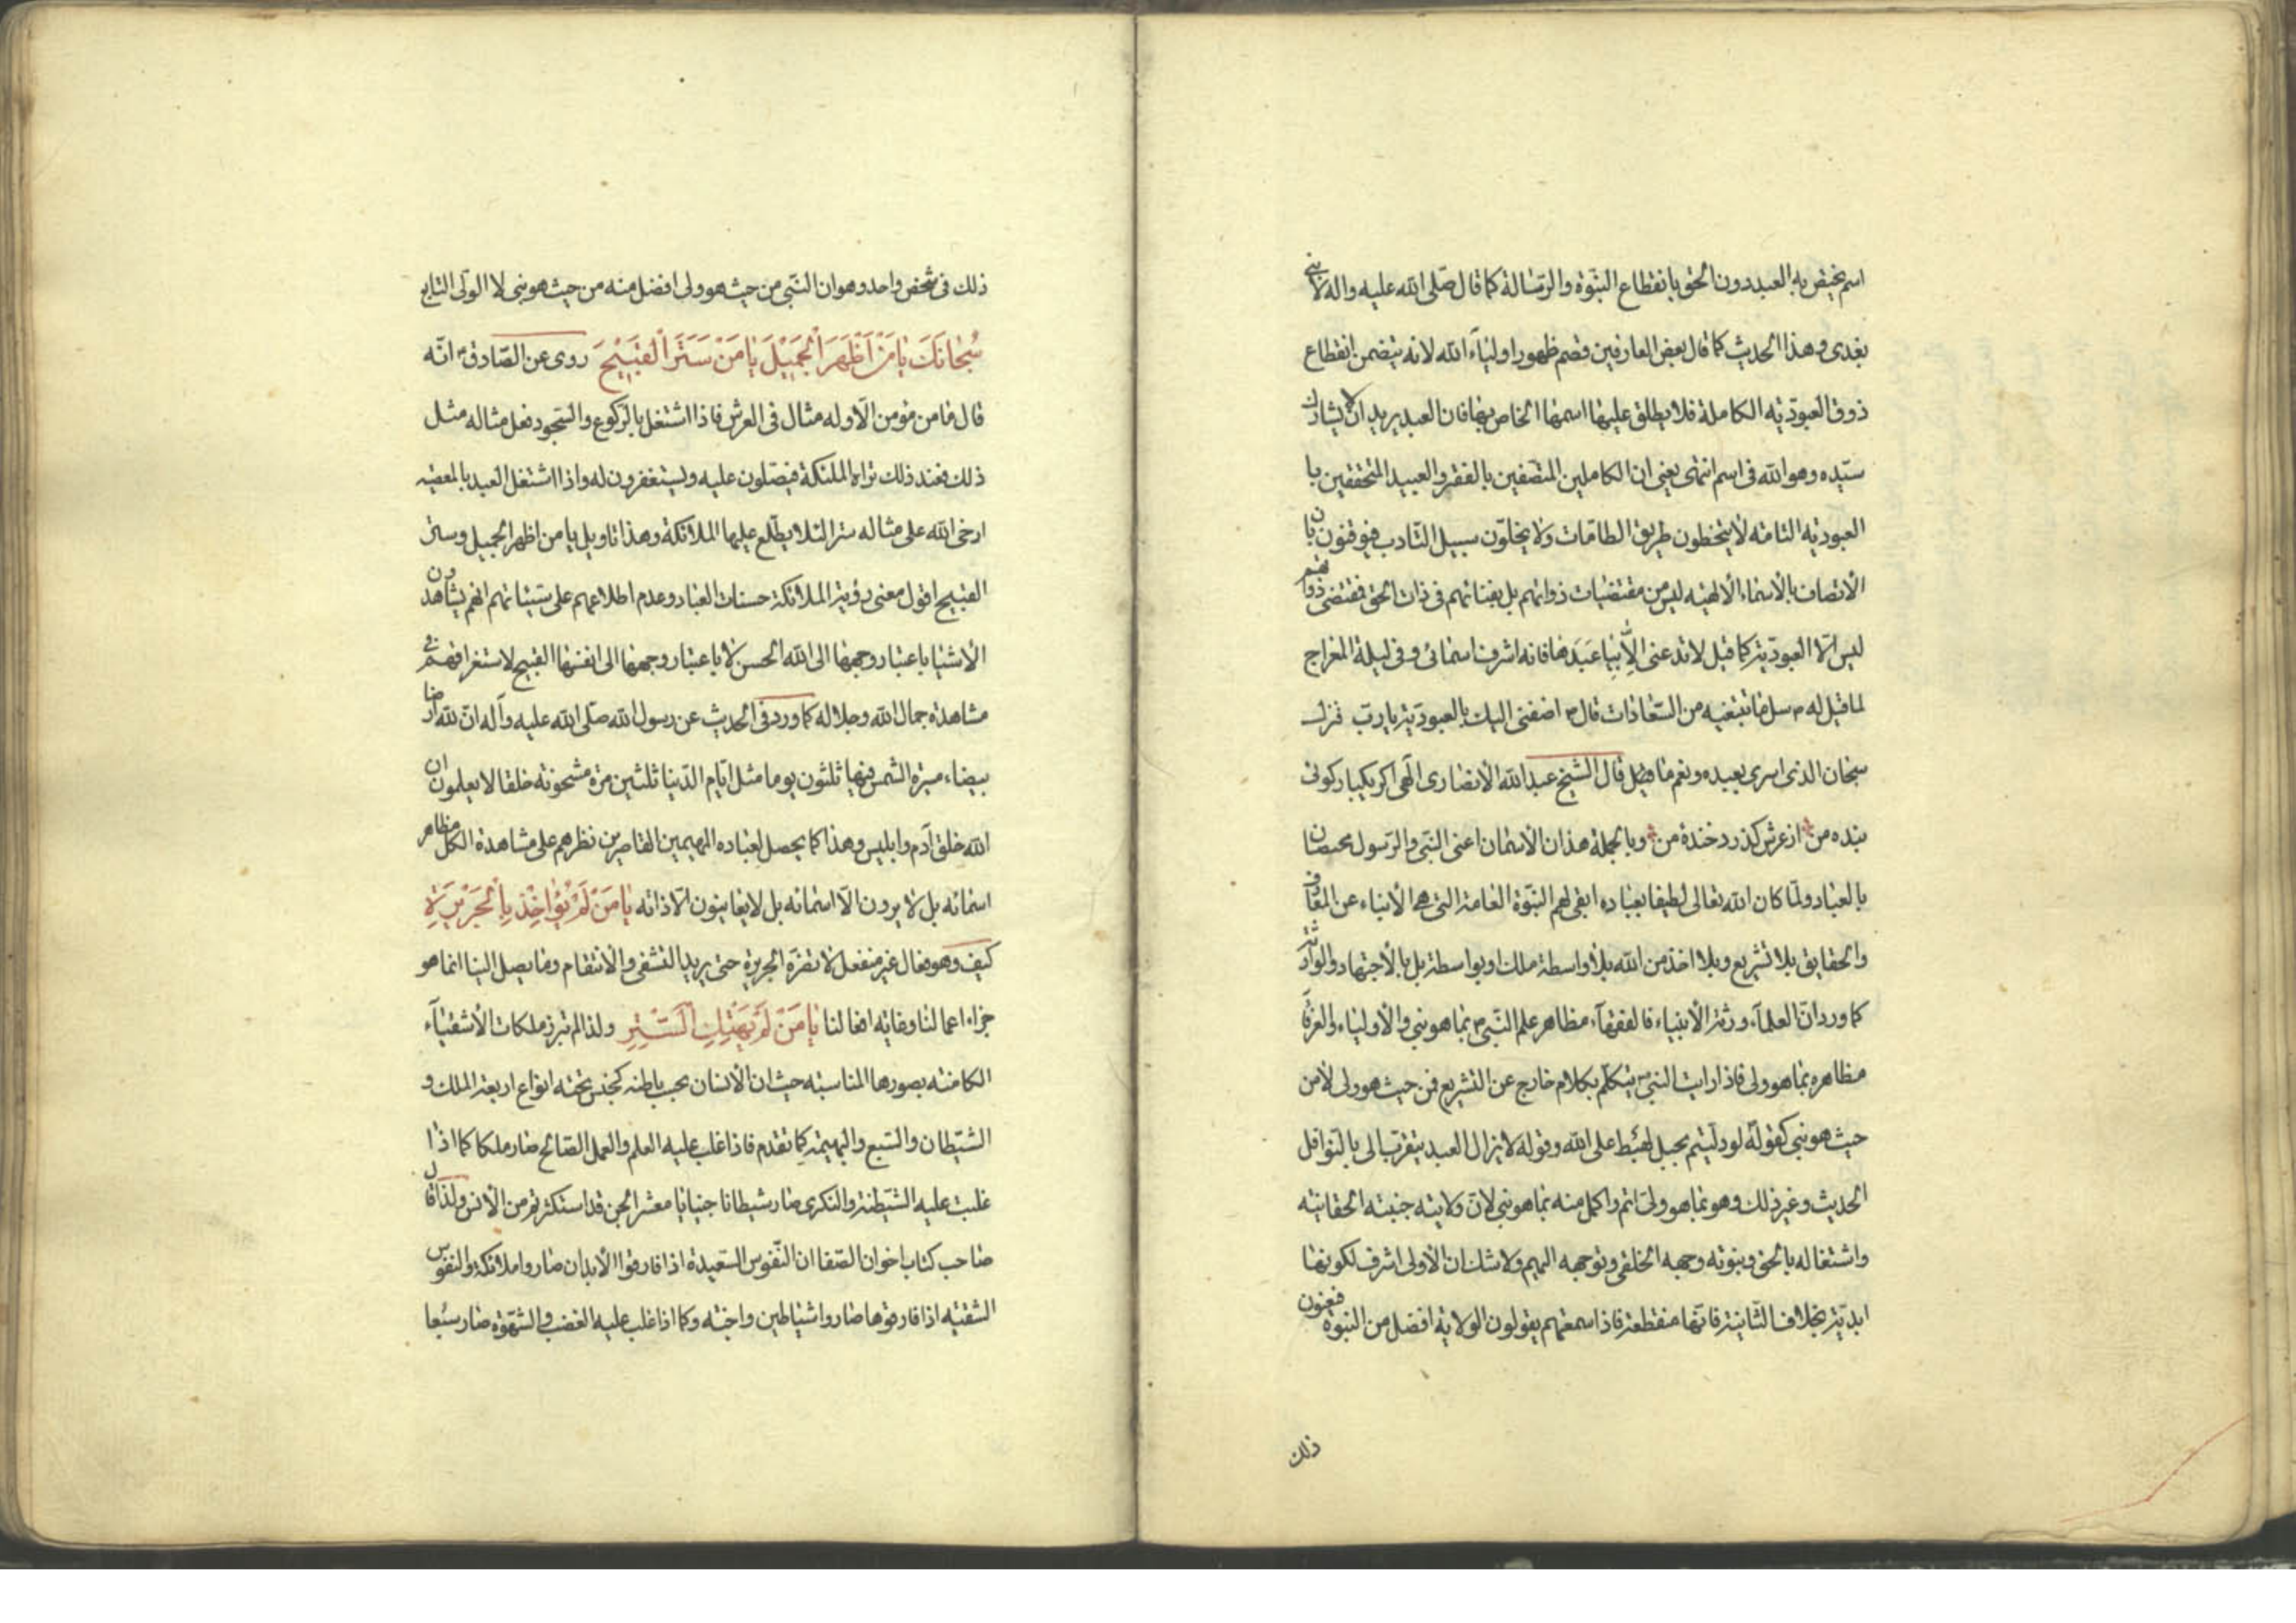 اسم يختص به العبد دون الحق بانقطاع النبوة والرسالة كما قال صلى الله عليه واله لا نبي
بعدى وهذا الحديث كما قال بعض العارفين قصم ظهور اولياء الله لانه يتضمن انقطاع
ذوق العبودية الكاملة فلا يطلق عليها اسمها الخاص بها فان العبد يريد ان لا يشارك
سيده وهو الله فى اسم انتهى يعنى ان الكاملين المتصفين بالفقر والعبيد المتحققين با
العبودية التامة لا يتخطون طريق الطامات ولا يخلون سبيل التادب فيوقنون بان
الاتصاف بالاسماء الالهيه ليس من مقتضيات ذواتهم بل بفنائهم فى ذات الحق فمقتضى ذواتهم
ليس الا العبودية كما قيل لا تدعنى الا بيا عبدها فانه اشرف اسمائى وفى ليلة المعراج
لما قيل له ص سل ما تبتغيه من السعادات قال ص اضفنى اليك بالعبودية يا رب فنزلت
سبحان الذى اسرى بعبده ونعم ما قيل قال الشيخ عبد الله الانصارى الهى اكر يكبار كوئى
بنده من از عرش كذرد خنده من وبالجملة هذان الاسمان اعنى النبى والرسول مختصان
بالعباد ولما كان الله تعالى لطيفا بعباده ابقى لهم النبوة العامة التى هى الانباء عن المعارف
والحقايق بلا تشريع وبلا اخذ من الله بلا واسطة ملك او بواسطة بل بالاجتهاد والوراثة
كما ورد ان العلماء ورثة الانبياء فالفقهاء مظاهر علم النبى ص بما هو نبى والاولياء والعرفا
مظاهره بما هو ولى فاذا رايت النبى ص يتكلم بكلام خارج عن التشريع فمن حيث هو ولى لا من
حيث هو نبى كقوله لو دليتم بحبل لهبط على الله وقوله لا يزال العبد يتقرب الى بالنوافل
الحديث وغير ذلك وهو بما هو ولى اتم واكمل منه بما هو نبى لان ولايته جنبته الحقانية
واشتغاله بالحق ونبوته وجهه الخلقى وتوجهه اليهم ولا شك ان الاولى اشرف لكونها
ابدية بخلاف الثانية فانها منقطعة فاذا سمعتهم يقولون الولاية افضل من النبوة فيعنون
ذلك
ذلك فى شخص واحد وهو ان النبى من حيث هو ولى افضل منه من حيث هو نبى لا الولى التابع
سُبْحانَكَ يا مَنْ اَظْهَرَ الْجَمِيْلَ يا مَنْ سَتَرَ الْقَبِيْحَ روى عن الصادق ع انه
قال ما من مؤمن الا وله مثال فى العرش فاذا اشتغل بالركوع والسجود فعل مثاله مثل
ذلك فعند ذلك تراه الملئكة فيصلون عليه ويستغفرون له واذا اشتغل العبد بالمعصيه
ارخى الله على مثاله سترا لئلا يطلع عليها الملائكة وهذا تاويل يا من اظهر الجميل وستر
القبيح اقول معنى رؤية الملائكة حسنات العباد وعدم اطلاعهم على سيئاتهم انهم يشاهدون
الاشيا باعتبار وجهها الى الله الحسن لا باعتبار وجهها الى انفسها القبيح لاستغراقهم فى
مشاهدة جمال الله وجلاله كما ورد فى الحديث عن رسول الله صلى الله عليه وآله ان لله ارضا
بيضاء مسيرة الشمس فيها ثلثون يوما مثل ايام الدنيا ثلثين مرة مشحونة خلقا لا يعلمون ان
الله خلق آدم وابليس وهذا كما يحصل لعباده المهيمين القاصرين نظرهم على مشاهدة الكل مظاهر
اسمائه بل لا يرون الا اسمائه بل لا يعاينون الا ذاته يا مَنْ لَمْ يُؤاخِذْ بِالْجَرِيْرَةِ
كيف وهو فعال غير منفعل لا تضره الجريرة حتى يريد التشفى والانتقام وما يصل الينا انما هو
جزاء اعمالنا وغاية افعالنا يا مَنْ لَمْ يَهْتِكِ السِّتْرَ ولذا لم تبرز ملكات الاشقياء
الكامنة بصورها المناسبة حيث ان الانسان بحسب باطنه كجنس تحته انواع اربعة الملك و
الشيطان والسبع والبهيمة كما تقدم فاذا غلب عليه العلم والعمل الصالح صار ملكا كما اذا
غلبت عليه الشيطنة والنكرى صار شيطانا جنيا يا معشر الجن قد استكثرتم من الانس ولذا قال
صاحب كتاب اخوان الصفا ان النفوس السعيدة اذا فارقوا الابدان صاروا ملائكة والنفوس
الشقية اذا فارقوها صاروا شياطين واجنة وكما اذا غلب عليه الغضب والشهوة صار سبعا